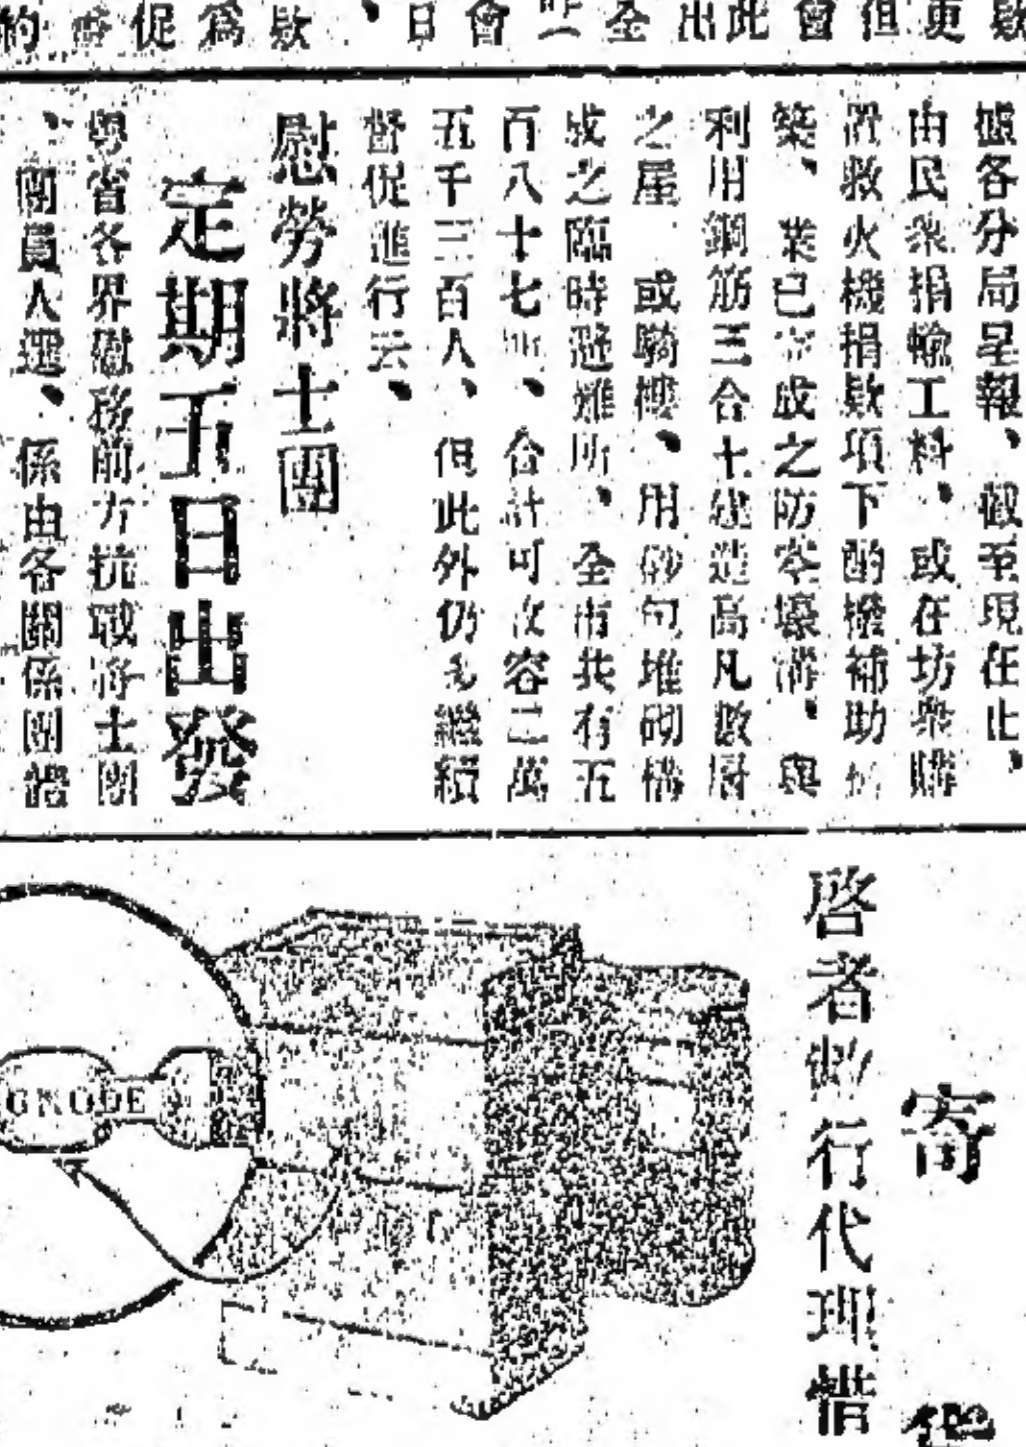 欵更但會此出全 會日、欵為促 的
據各分局呈報、截至現在止、
由民衆捐輸工料、或在坊衆購
置救火機捐欵項下酌撥補助
築、業已完成之防空壕溝、與
利用鋼筋三合土建造高凡數層
之屋 或騎樓、用砂包堆砌構
成之臨時避難所、全市共有五
百八十七 、合計可 容二萬
五千三百人、但此外仍 繼續
督促進行云、
慰勞將士團
定期五日出發
粵省各界慰務前方抗戰將士團
、團員人選、係由各關係團體
寄
啓者 行代理惜
GNODE